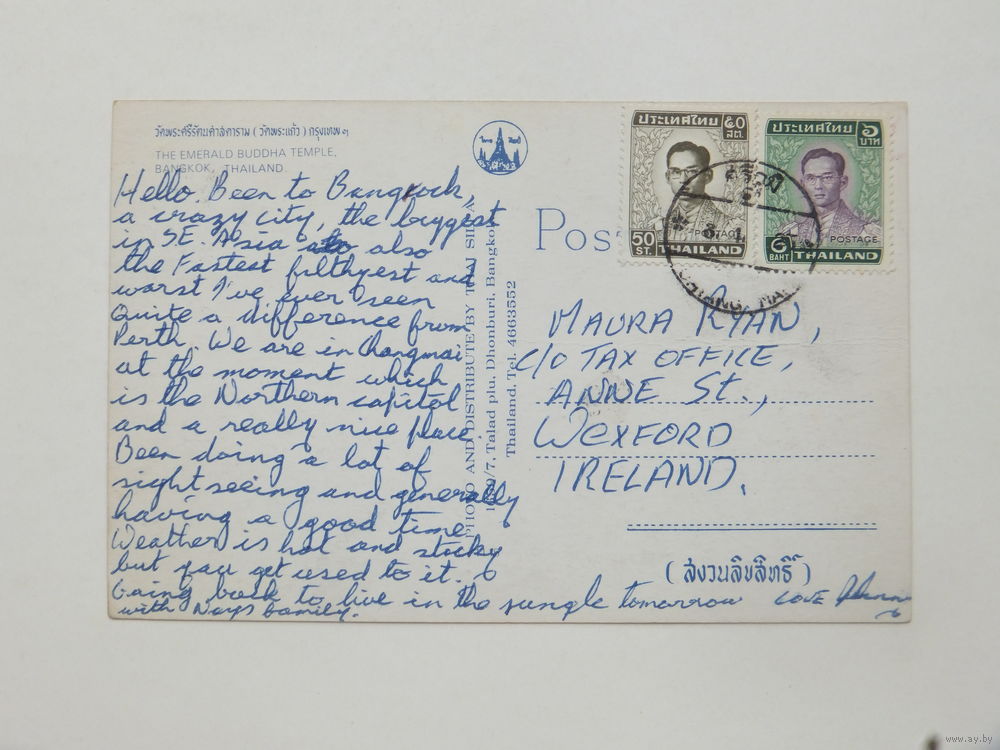 วัดพระศรีรัตนศาสดาราม (วัดพระแก้ว) กรุงเทพฯ
THE EMERALD BUDDHA TEMPLE,
BANGKOK, THAILAND.
Hello. Been to Bangkock,
a crazy city, the biggest
in SE. Asia also
the Fastest filthyest and
worst I've ever seen
Quite a difference from
Perth. We are in Changmai
at the moment which
is the Northern capitol
and a really nice place.
Been doing a lot of
sight seeing and generally
having a good time.
Weather is hot and sticky
but you get used to it.
Going back to live in the jungle tomorrow LOVE
with Noys family.
PHOTO AND DISTRIBUTE BY
Talad plu, Dhonburi, Bangkok
Thailand. Tel. 4663552
Pos
ประเทศไทย ๕๐ สต.
POSTAG
50 ST. THAILAND
ประเทศไทย ๖ บาท
POSTAGE
6 BAHT THAILAND
MAURA RYAN,
C/O TAX OFFICE,
ANNE St.,
WEXFORD
IRELAND.
(สงวนลิขสิทธิ์)
www.ay.by